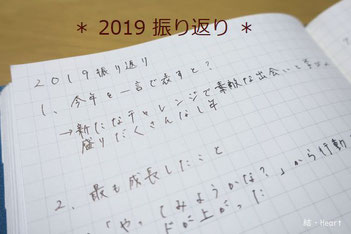 * 2019 振り返り *
2019振り返り
1、今年を一言で表すと?
→新たなチャレンジで素敵な出会い、
盛りだくさんな年
2、最も成長したこと
「や、てみようかな?」から行動
ドが上がった
結・Heart